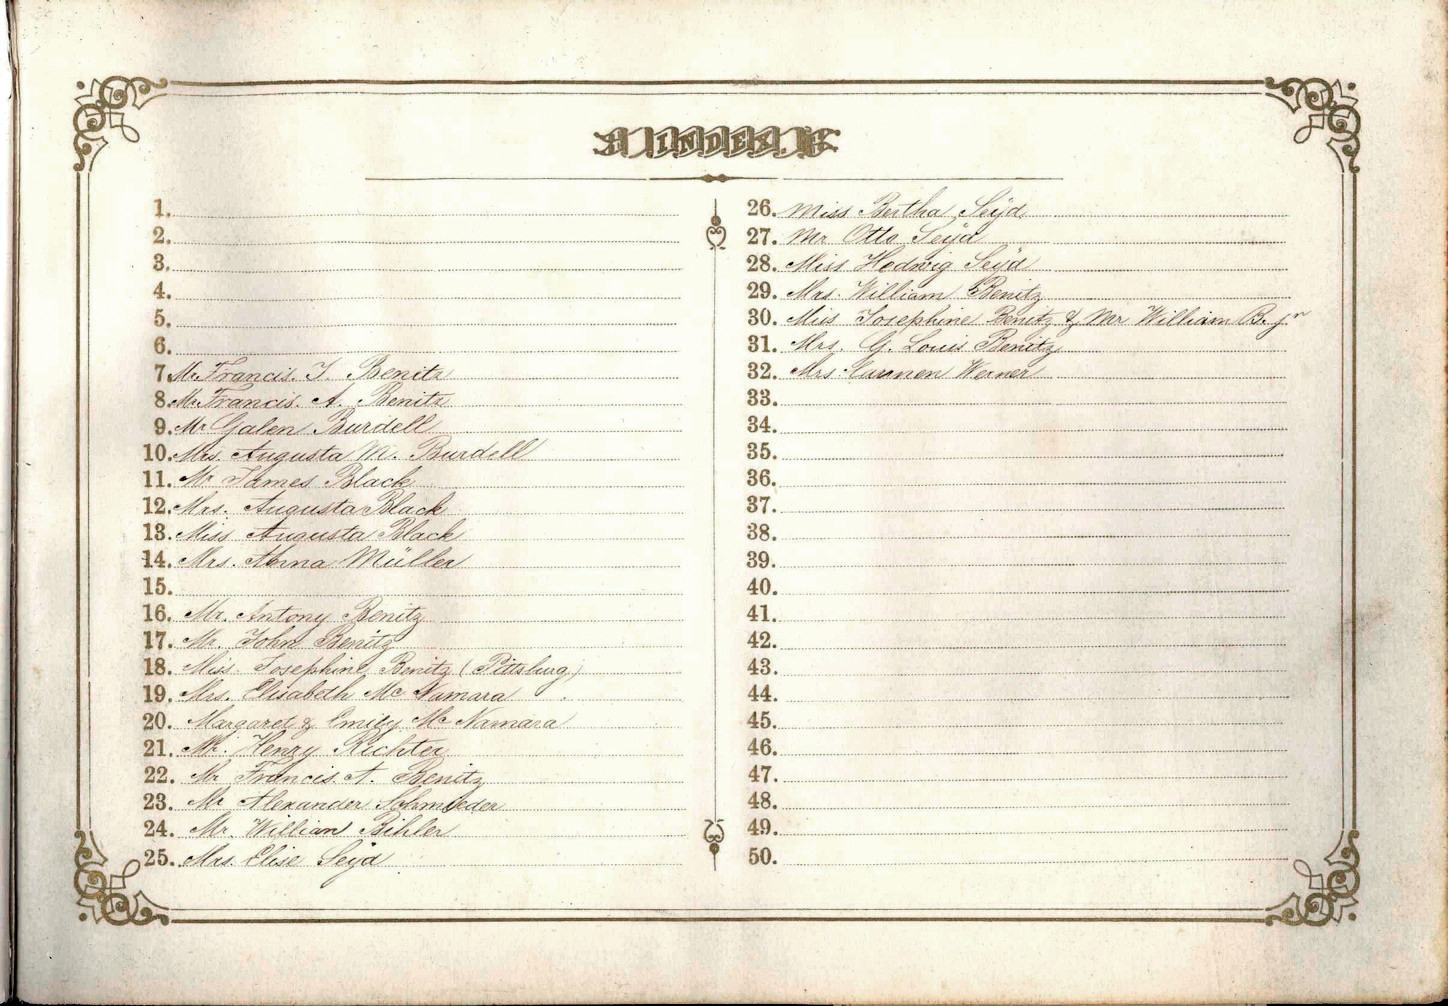 INDEX.
1.
2.
3.
4.
5.
6.
7. Mr Francis. J. Benitz
8. Mr Francis. A. Benitz
9. Mr Galen Burdell
10. Mrs. Augusta M. Burdell
11. Mr James Black
12. Mrs. Augusta Black
13. Miss Augusta Black
14. Mrs. Anna Müller
15.
16. Mr. Antony Benitz
17. Mr. John Benitz
18. Miss Josephine Benitz (Pittsburg)
19. Mrs. Elisabeth Mc Namara
20. Margaret & Emily Mc Namara
21. Mr. Henry Richter
22. Mr Francis. A. Benitz
23. Mr Alexander Schmieder
24. Mr. William Bihler
25. Mrs. Elise Seÿd
26. Miss Bertha Seÿd
27. Mr Otto Seÿd
28. Miss Hedwig Seÿd
29. Mrs. William Benitz
30. Miss Josephine Benitz & Mr William B. jr
31. Mrs. G. Louis Benitz
32. Mrs. Carmen Werner
33.
34.
35.
36.
37.
38.
39.
40.
41.
42.
43.
44.
45.
46.
47.
48.
49.
50.